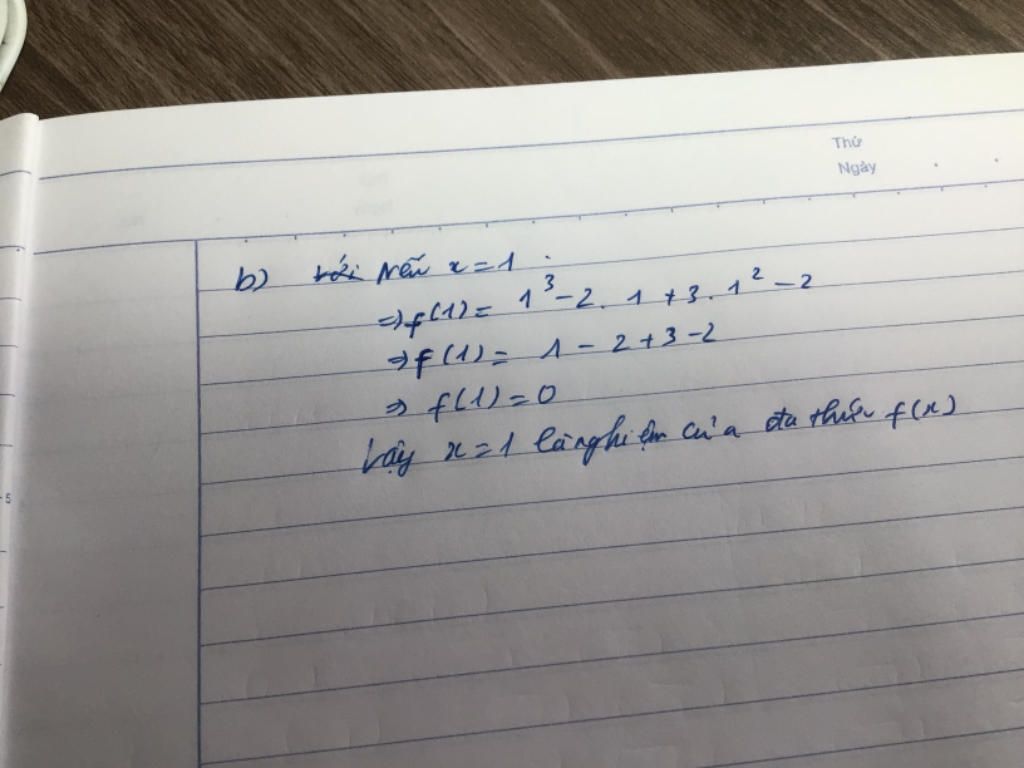 Thứ
Ngày
b) với nếu x = 1
⇒ f(1) = 1³ - 2. 1 + 3. 1² - 2
⇒ f(1) = 1 - 2 + 3 - 2
⇒ f(1) = 0
Vậy x = 1 là nghiệm của đa thức f(x)
5